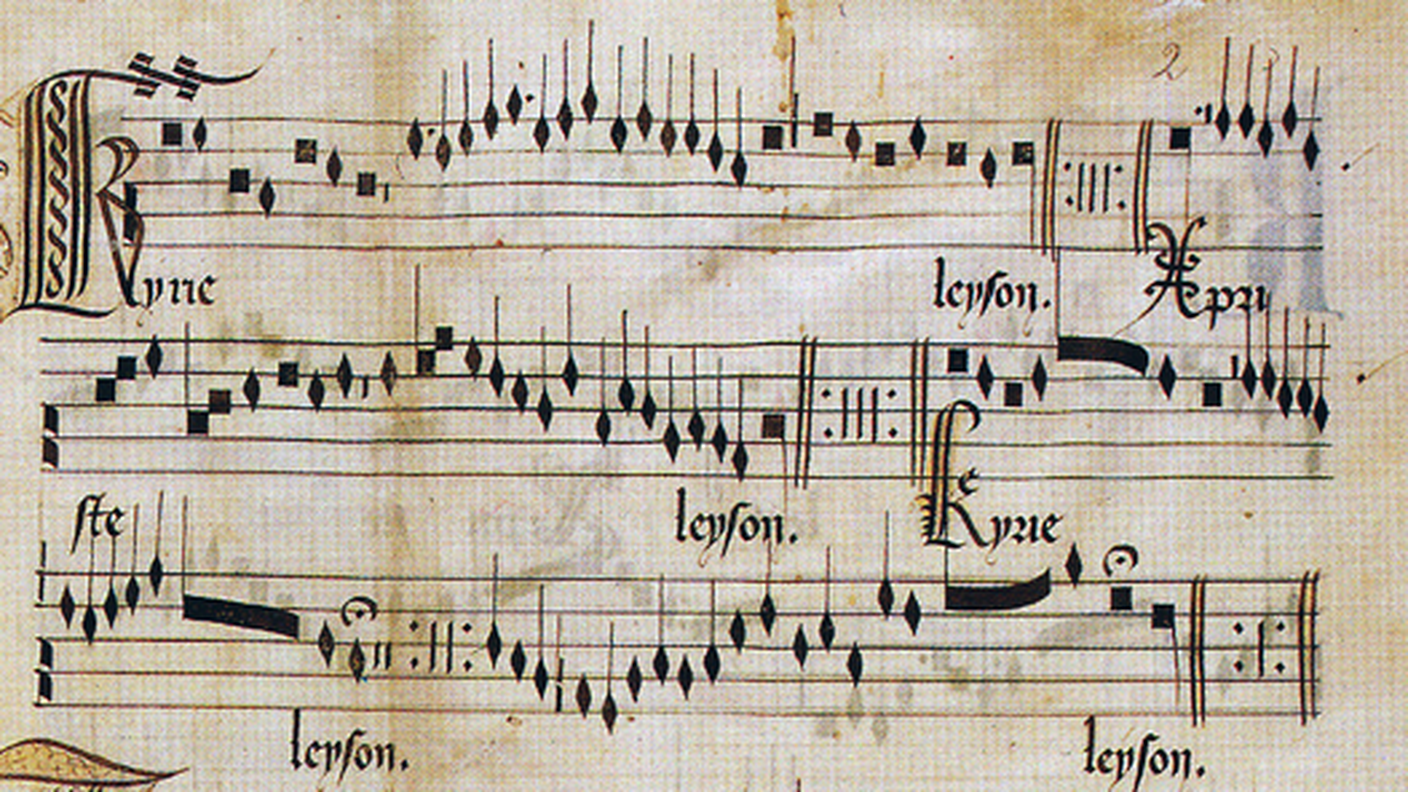 2
Kyrie leyson. Xpri
ste leyson. Kyrie
leyson. leyson.